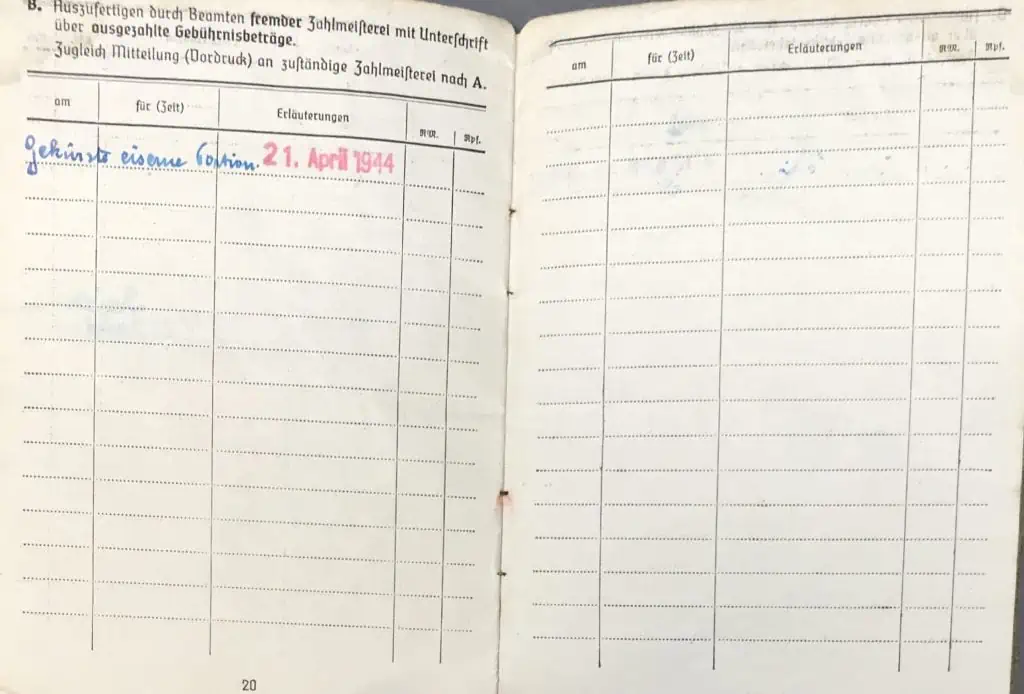 B. Auszufertigen durch Beamten fremder Zahlmeisterei mit Unterschrift
über ausgezahlte Gebührnisbeträge.
Zugleich Mitteilung (Vordruck) an zuständige Zahlmeisterei nach A.
am für (Zeit) Erläuterungen RM. Rpf.
Gekürzte eiserne Portion. 21. April 1944
20
am für (Zeit) Erläuterungen RM. Rpf.